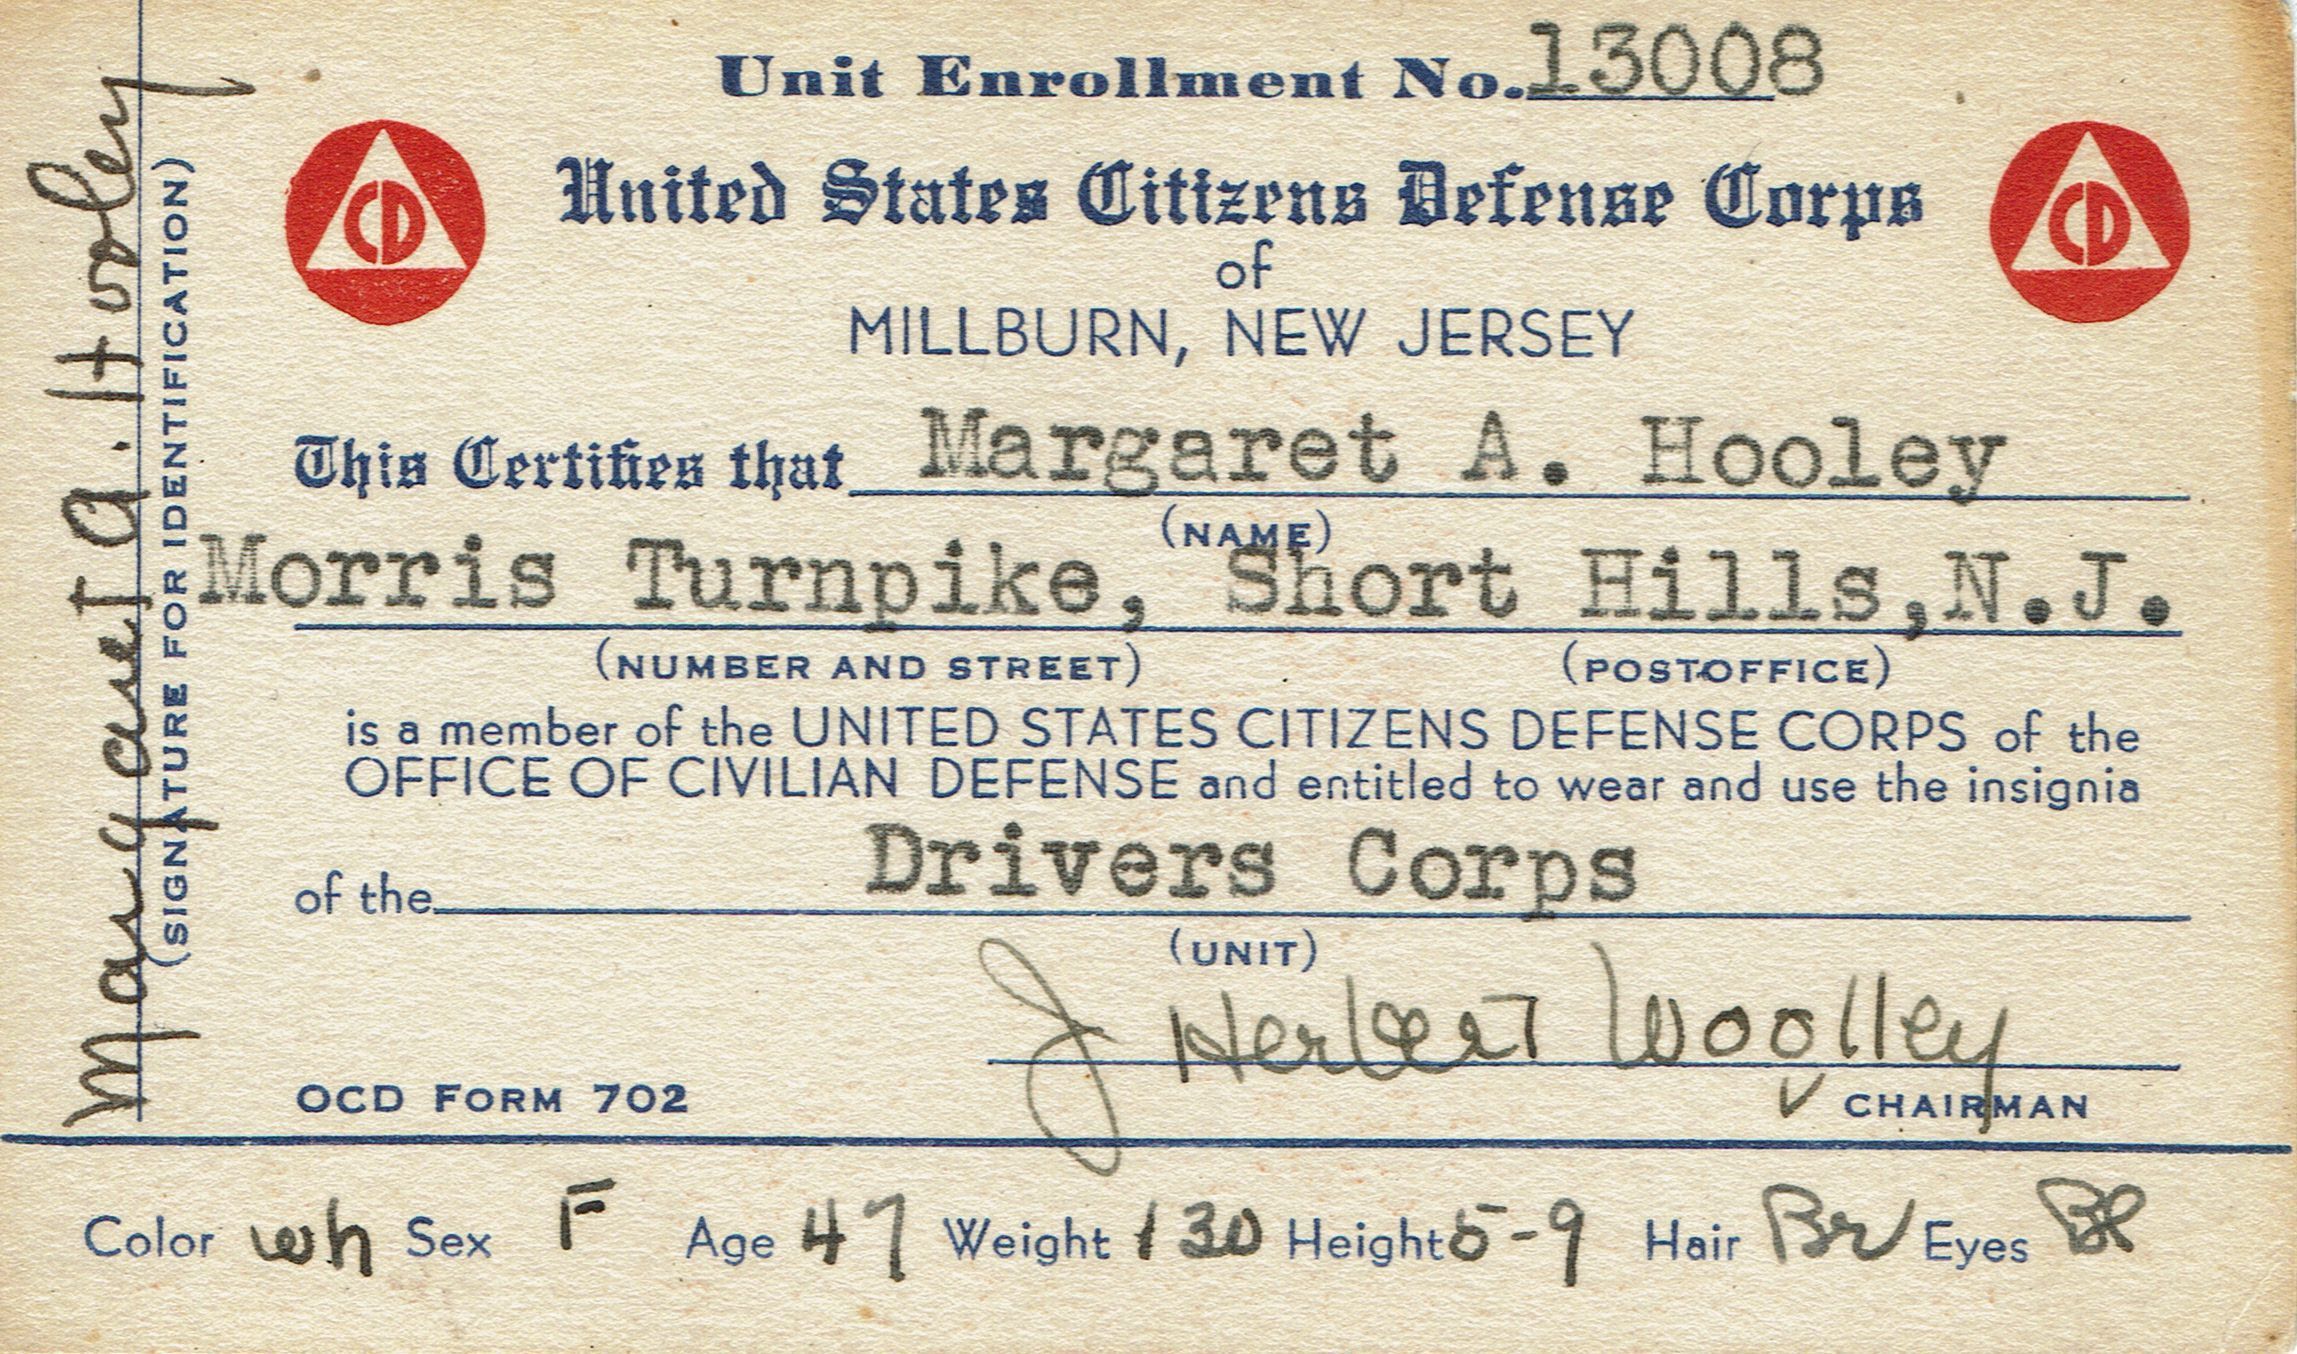 Unit Enrollment No. 13008
CD
CD
United States Citizens Defense Corps
of
MILLBURN, NEW JERSEY
This Certifies that Margaret A. Hooley
(NAME)
Morris Turnpike, Short Hills, N.J.
(NUMBER AND STREET) (POSTOFFICE)
is a member of the UNITED STATES CITIZENS DEFENSE CORPS of the
OFFICE OF CIVILIAN DEFENSE and entitled to wear and use the insignia
of the Drivers Corps
(UNIT)
J Herbert Woolley
OCD FORM 702 CHAIRMAN
Color wh Sex F Age 47 Weight 130 Height 5-9 Hair Br Eyes Bl
Margaret A. Hooley
(SIGNATURE FOR IDENTIFICATION)